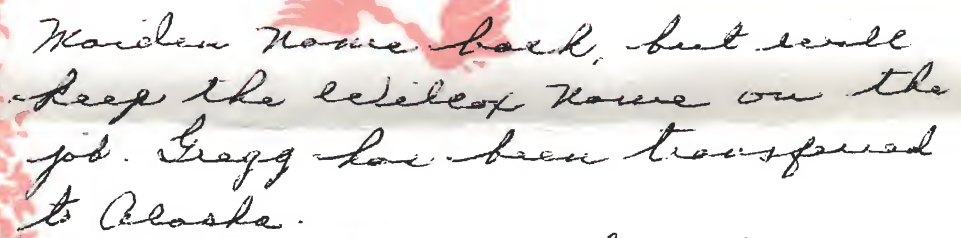 Maiden Name back, but will
keep the Wilcox Name on the
job. Gregg has been transferred
to Alaska.